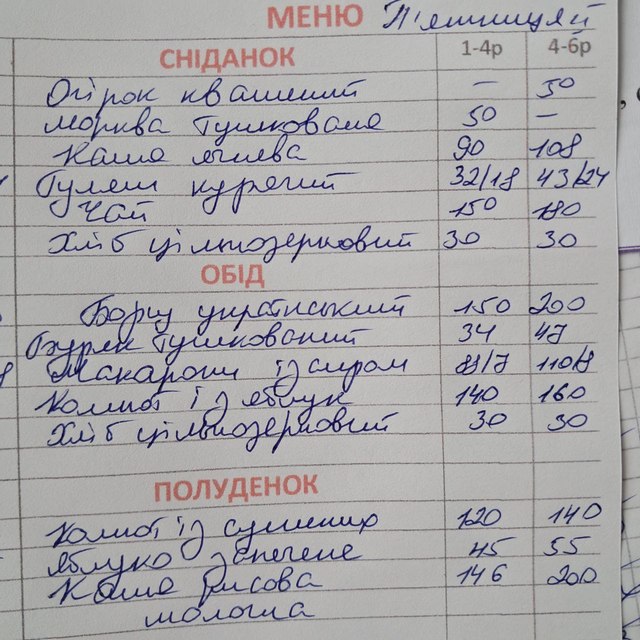 МЕНЮ П'ятниця
СНІДАНОК 1-4р 4-6р
Огірок квашений — 50
Морква тушкована 50 —
Каша ячнева 90 108
Гуляш курячий 32/18 43/24
Чай 150 180
Хліб цільнозерновий 30 30
ОБІД
Борщ український 150 200
Буряк тушкований 34 47
Макарони із сиром 88/7 110/8
Компот із яблук 140 160
Хліб цільнозерновий 30 30
ПОЛУДЕНОК
Компот із сушених 120 140
яблуко запечене 45 55
Каша рисова 146 200
молочна